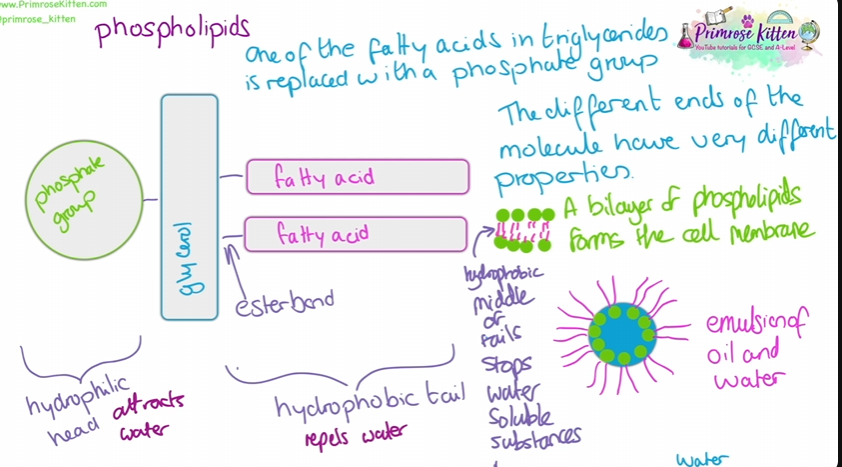 www.PrimroseKitten.com
@primrose_kitten
phospholipids
one of the fatty acids in triglycerides
is replaced with a phosphate group
Primrose Kitten
YouTube tutorials for GCSE and A-Level
The different ends of the
molecule have very different
properties.
phosphate
group
glycerol
fatty acid
fatty acid
ester bond
A bilayer of phospholipids
forms the cell membrane
hydrophobic
middle
of
tails
stops
water
soluble
substances
emulsion of
oil and
water
hydrophilic
head attracts
water
hydrophobic tail
repels water
water